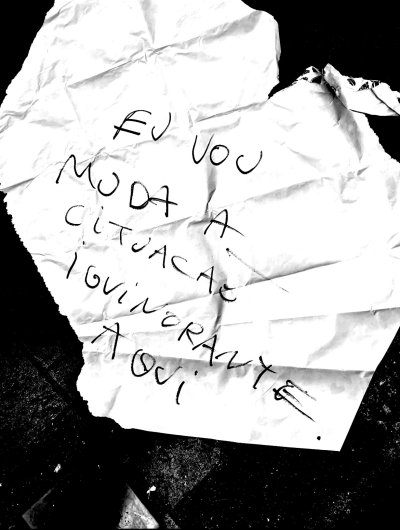 EU VOU
MUDA A
CITUACAE
iGUiNORANTE.
AQUi